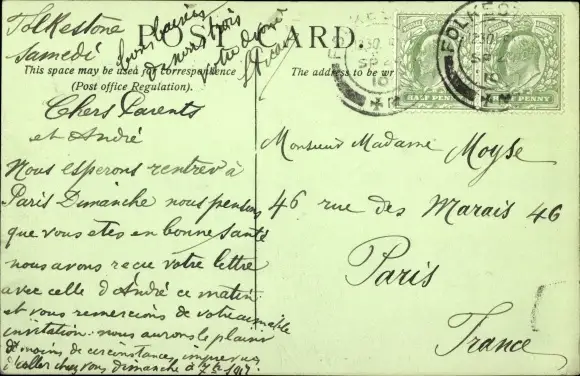 Folkestone
Samedi
Bons baisers
de nous trois
POST CARD.
This space may be used for correspondence
(Post office Regulation).
The address to be wr
FOLKESTONE
SP 2
10
HALF PENNY
HALF PENNY
Chers Parents
et André
Nous esperons rentrer à
Paris Dimanche nous pensons
que vous etes en bonne santé
nous avons reçu votre lettre
avec celle d'André ce matin
et vous remercions de votre aimable
invitation. nous aurons le plaisir
à moins de circonstances imprévues
d'aller chez vous dimanche à
Monsieur Madame Moyse
46 rue des Marais 46
Paris
France